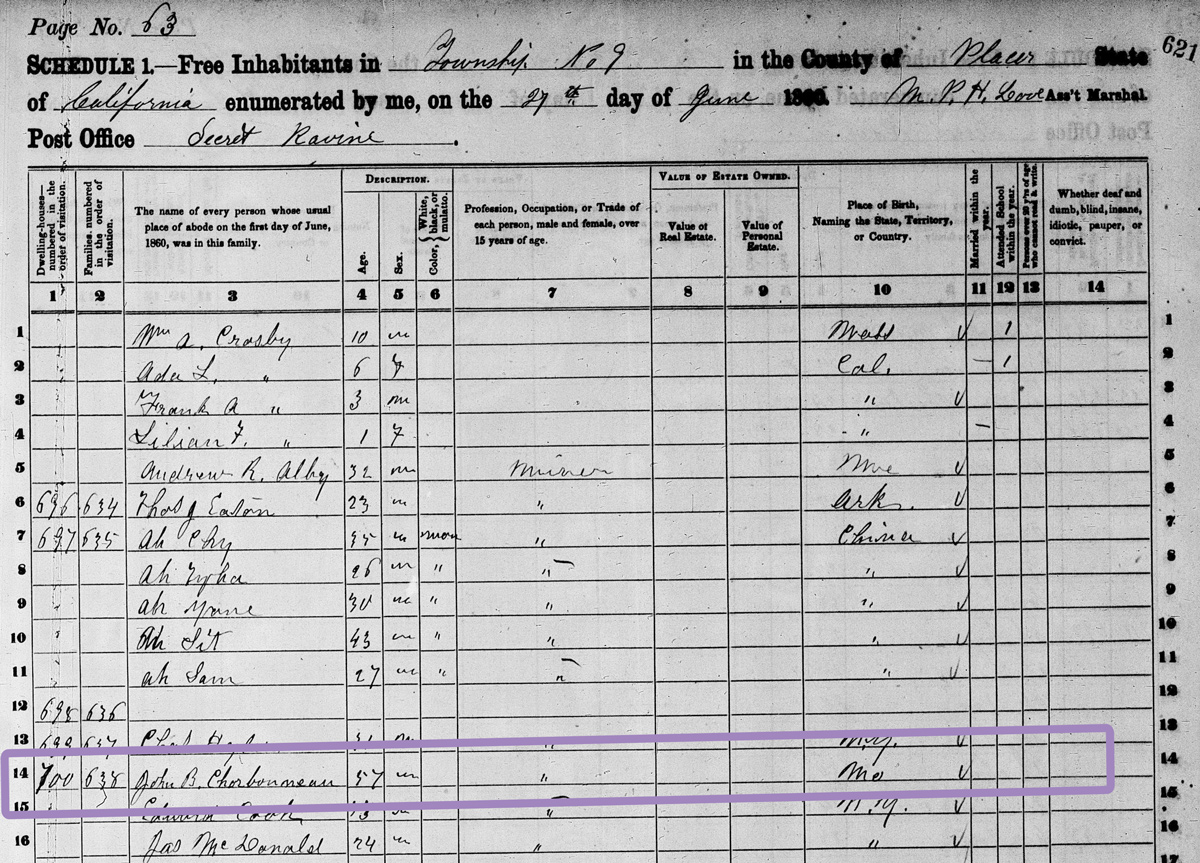 Page No. 63
621
SCHEDULE 1.—Free Inhabitants in Township No 9 in the County of Placer State
of California enumerated by me, on the 27th day of June 1860. M. P. H. Love Ass't Marshal.
Post Office Secret Ravine.
Dwelling-houses—numbered in the order of visitation.
Families numbered in the order of visitation.
The name of every person whose usual place of abode on the first day of June, 1860, was in this family.
DESCRIPTION.
Age.
Sex.
Color, White, black, or mulatto.
Profession, Occupation, or Trade of each person, male and female, over 15 years of age.
VALUE OF ESTATE OWNED.
Value of Real Estate.
Value of Personal Estate.
Place of Birth, Naming the State, Territory, or Country.
Married within the year.
Attended School within the year.
Persons over 20 y'rs of age who cannot read & write.
Whether deaf and dumb, blind, insane, idiotic, pauper, or convict.
1 2 3 4 5 6 7 8 9 10 11 12 13 14
1 Wm A. Crosby 10 m Mass 1 1
2 Ada L. " 6 f Cal. 1 2
3 Frank A " 3 m " 3
4 Lilian F. " 1 f " 4
5 Andrew R. Alby 32 m Miner 5
6 696 634 Thos J Eaton 23 m " Ark. 6
7 697 635 Ah Chy 35 m mon " China 7
8 Ah 26 m " " " 8
9 Ah Yane 30 m " " " 9
10 Ah Sit 43 m " " " 10
11 Ah Sam 27 m " " " 11
12 698 636 12
13 699 637 m " N.Y. 13
14 700 638 John B. Charbonneau 57 m " Mo 14
15 Edward Cook 13 m " N.Y. 15
16 Jas McDonald 24 m " " 16
17